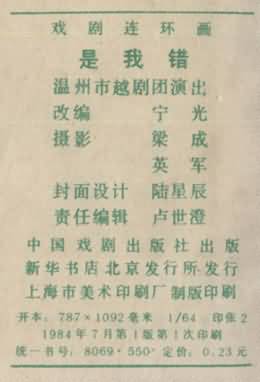 戏剧连环画
是我错
温州市越剧团演出
改编 宁光
摄影 梁成
英军
封面设计 陆星辰
责任编辑 卢世澄
中国戏剧出版社出版
新华书店北京发行所发行
上海市美术印刷厂制版印刷
开本：787×1092毫米 1/64 印张2
1984年7月第1版第1次印刷
统一书号：8069·550 定价：0.23元